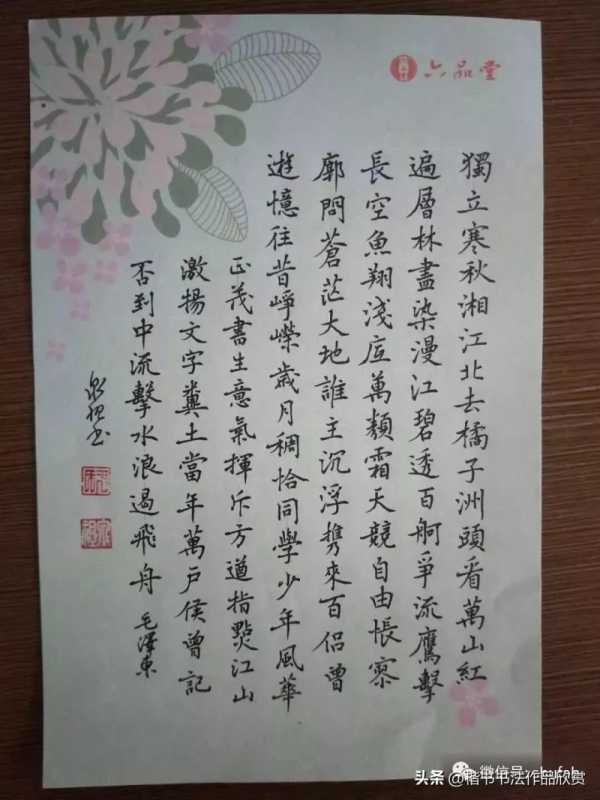 六品堂
獨立寒秋湘江北去橘子洲頭看萬山紅
遍層林盡染漫江碧透百舸爭流鷹擊
長空魚翔淺底萬類霜天競自由悵寥
廓問蒼茫大地誰主沉浮携來百侶曾
遊憶往昔崢嶸歲月稠恰同學少年風華
正茂書生意氣揮斥方遒指點江山
激揚文字糞土當年萬戶侯曾記
否到中流擊水浪遏飛舟 毛澤東
微信号
头条 @楷书书法作品欣赏